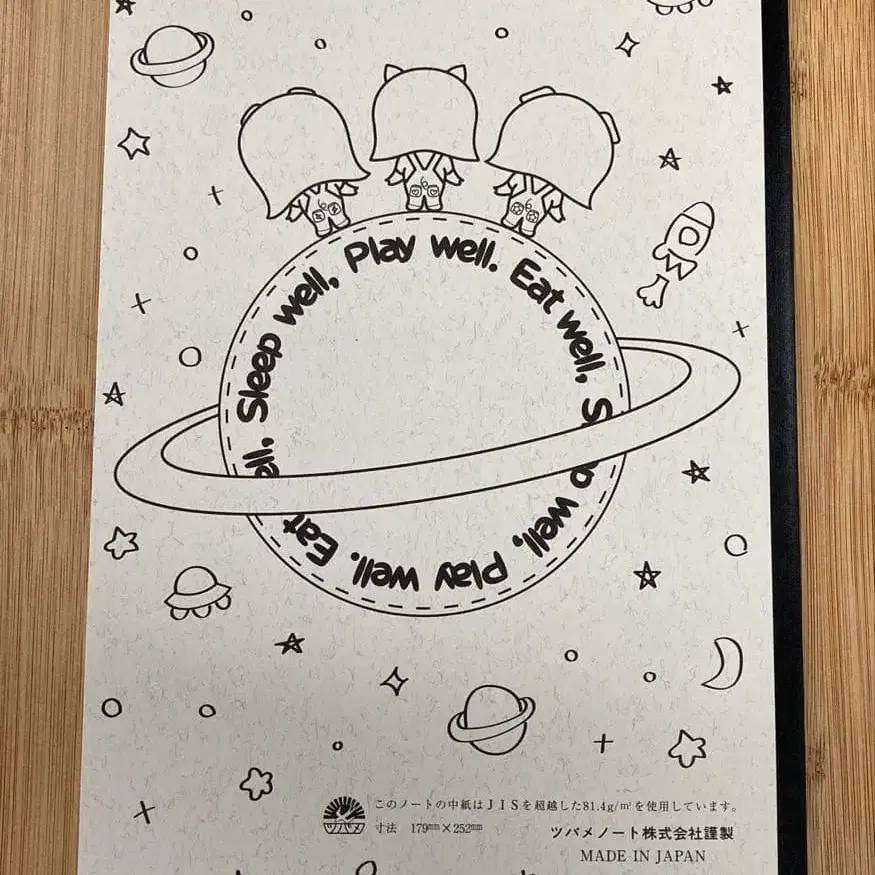 Eat well, Sleep well, Play well. Eat well, Sleep well, Play well.
ツバメ
このノートの中紙はJISを超越した81.4g/㎡を使用しています。
寸法 179㎜×252㎜
ツバメノート株式会社謹製
MADE IN JAPAN